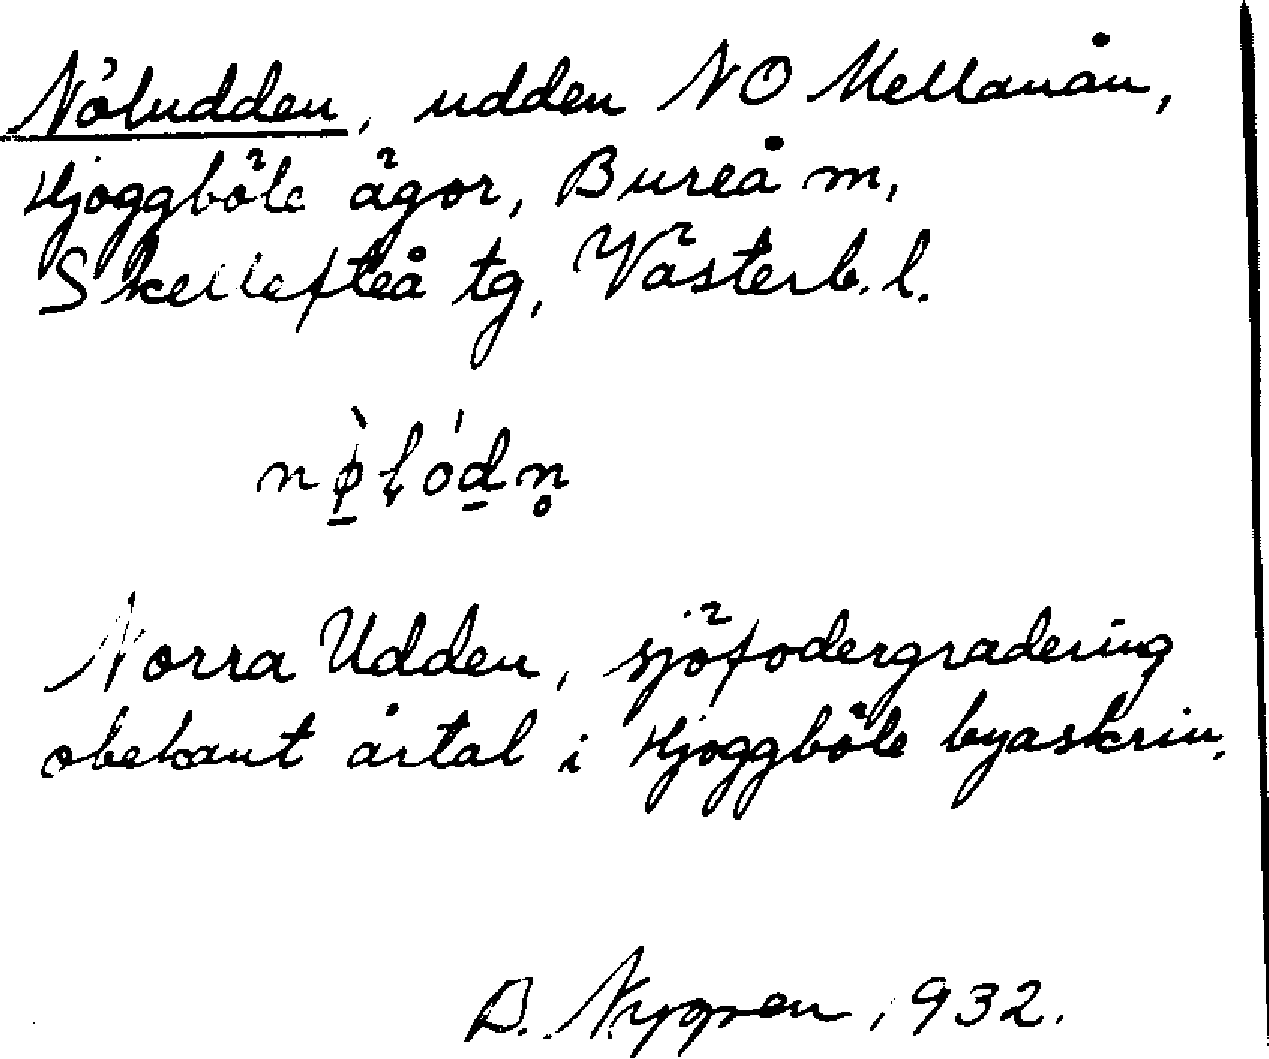 Nöludden, udden NO Mellanån,
Hjoggböle ägor, Bureå m,
Skellefteå tg, Västerb. l.
Norra Udden, sjöfodergradering
obekant årtal i Hjoggböle byaskrin.
B. Nygren, 1932.